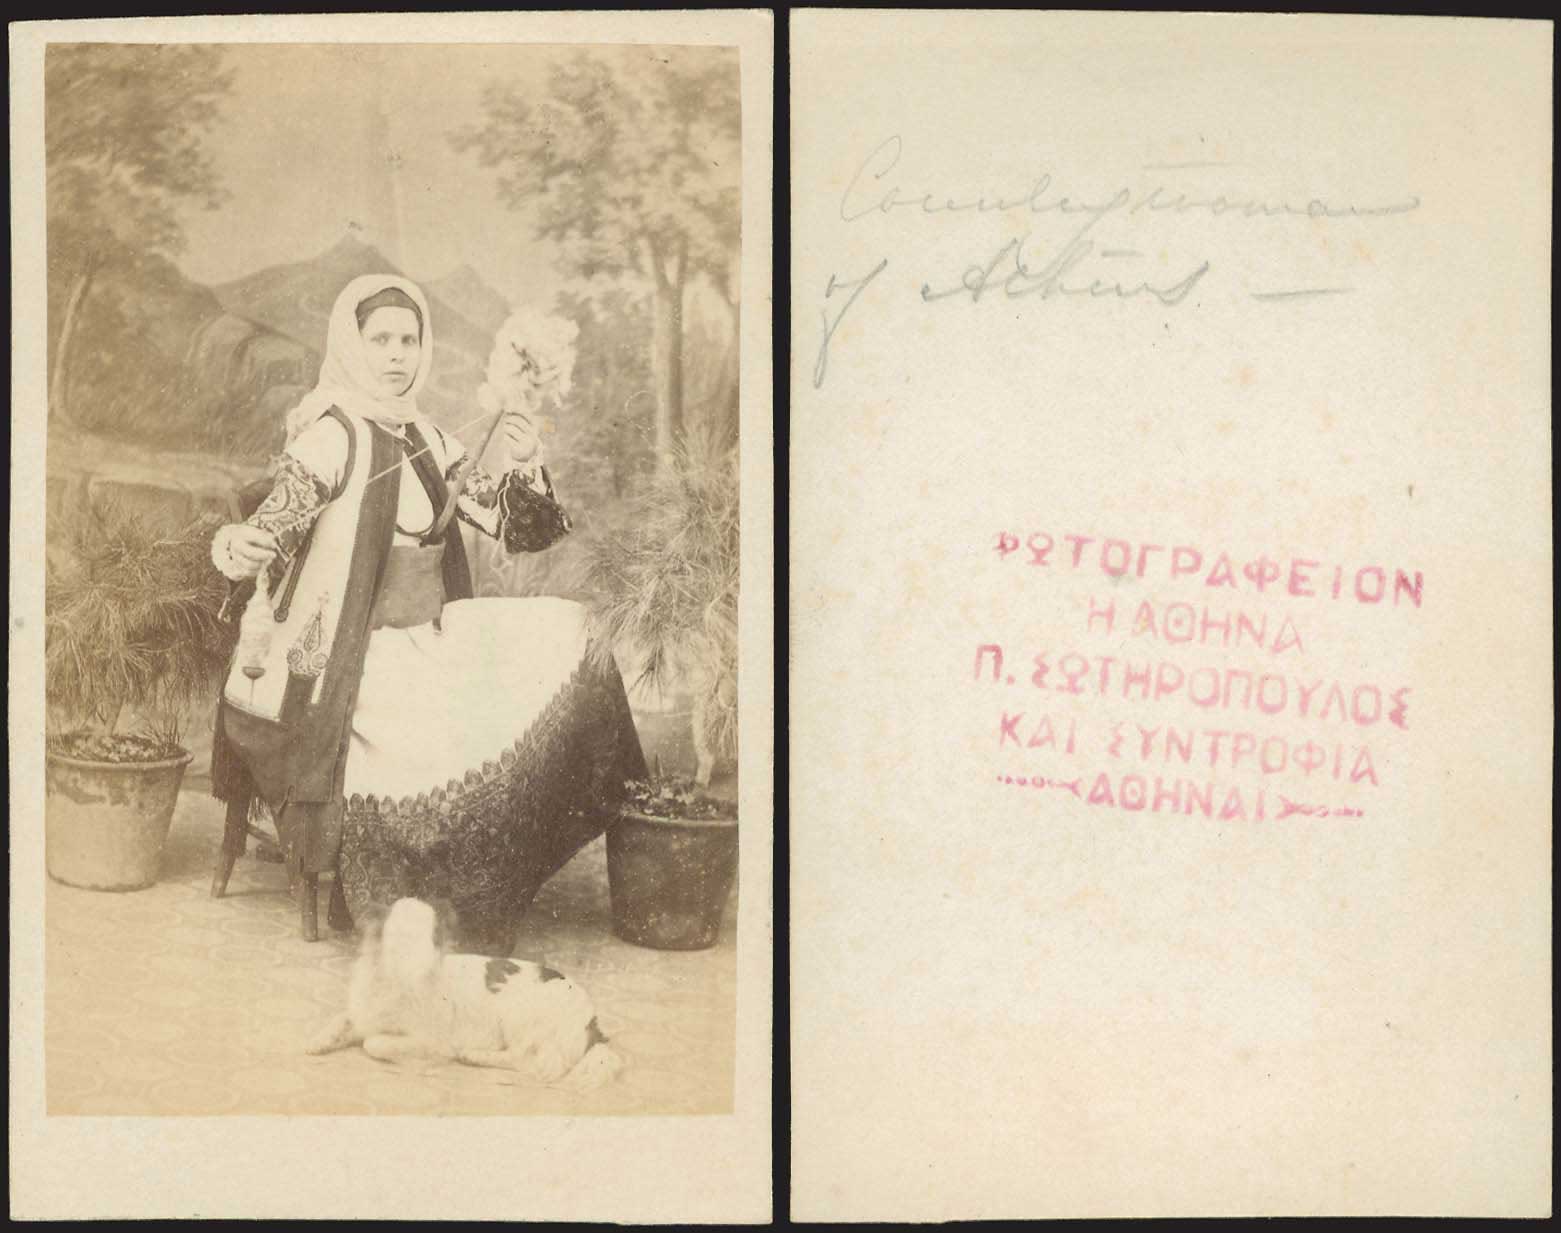 Countrywoman
of Athens —
ΦΩΤΟΓΡΑΦΕΙΟΝ
Η ΑΘΗΝΑ
Π. ΣΩΤΗΡΟΠΟΥΛΟΣ
ΚΑΙ ΣΥΝΤΡΟΦΙΑ
ΑΘΗΝΑΙ